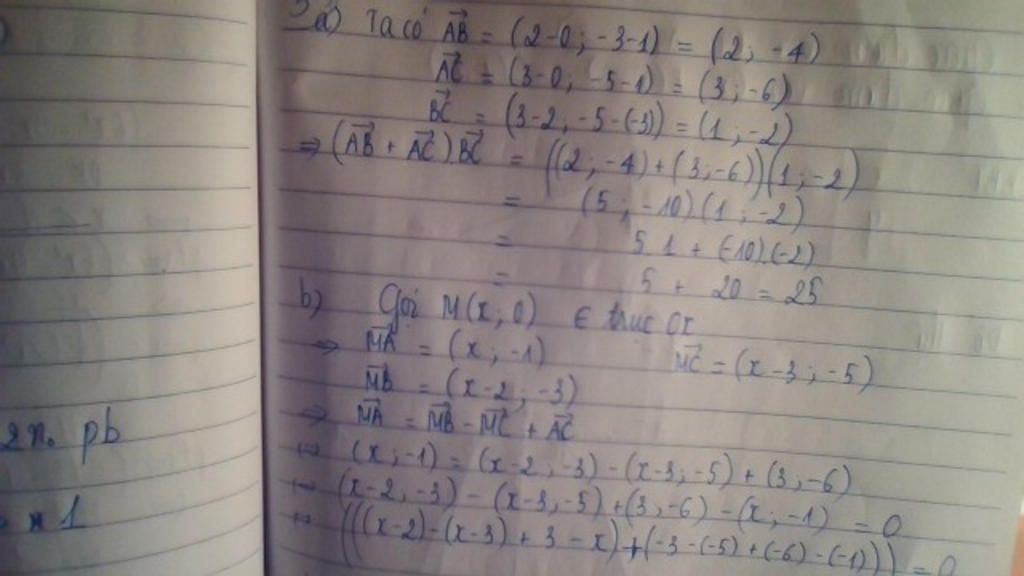 a) Ta có AB→ = (2-0; -3-1) = (2; -4)
AC→ = (3-0; -5-1) = (3; -6)
BC→ = (3-2; -5-(-3)) = (1; -2)
⇒ (AB→ + AC→) BC→ = ((2; -4)+(3;-6))(1; -2)
= (5; -10)(1; -2)
= 5.1 + (-10).(-2)
= 5 + 20 = 25
b) Gọi M(x; 0) ∈ trục Ox
⇒ MA→ = (x; -1) MC→ = (x-3; -5)
MB→ = (x-2; -3)
⇒ MA→ = MB→ - MC→ + AC→
↔ (x; -1) = (x-2; -3) - (x-3; -5) + (3; -6)
↔ (x-2; -3) - (x-3; -5) + (3; -6) - (x; -1) = 0
↔ (((x-2)-(x-3) + 3 - x) + (-3-(-5)+(-6)-(-1))) = 0
pb
1